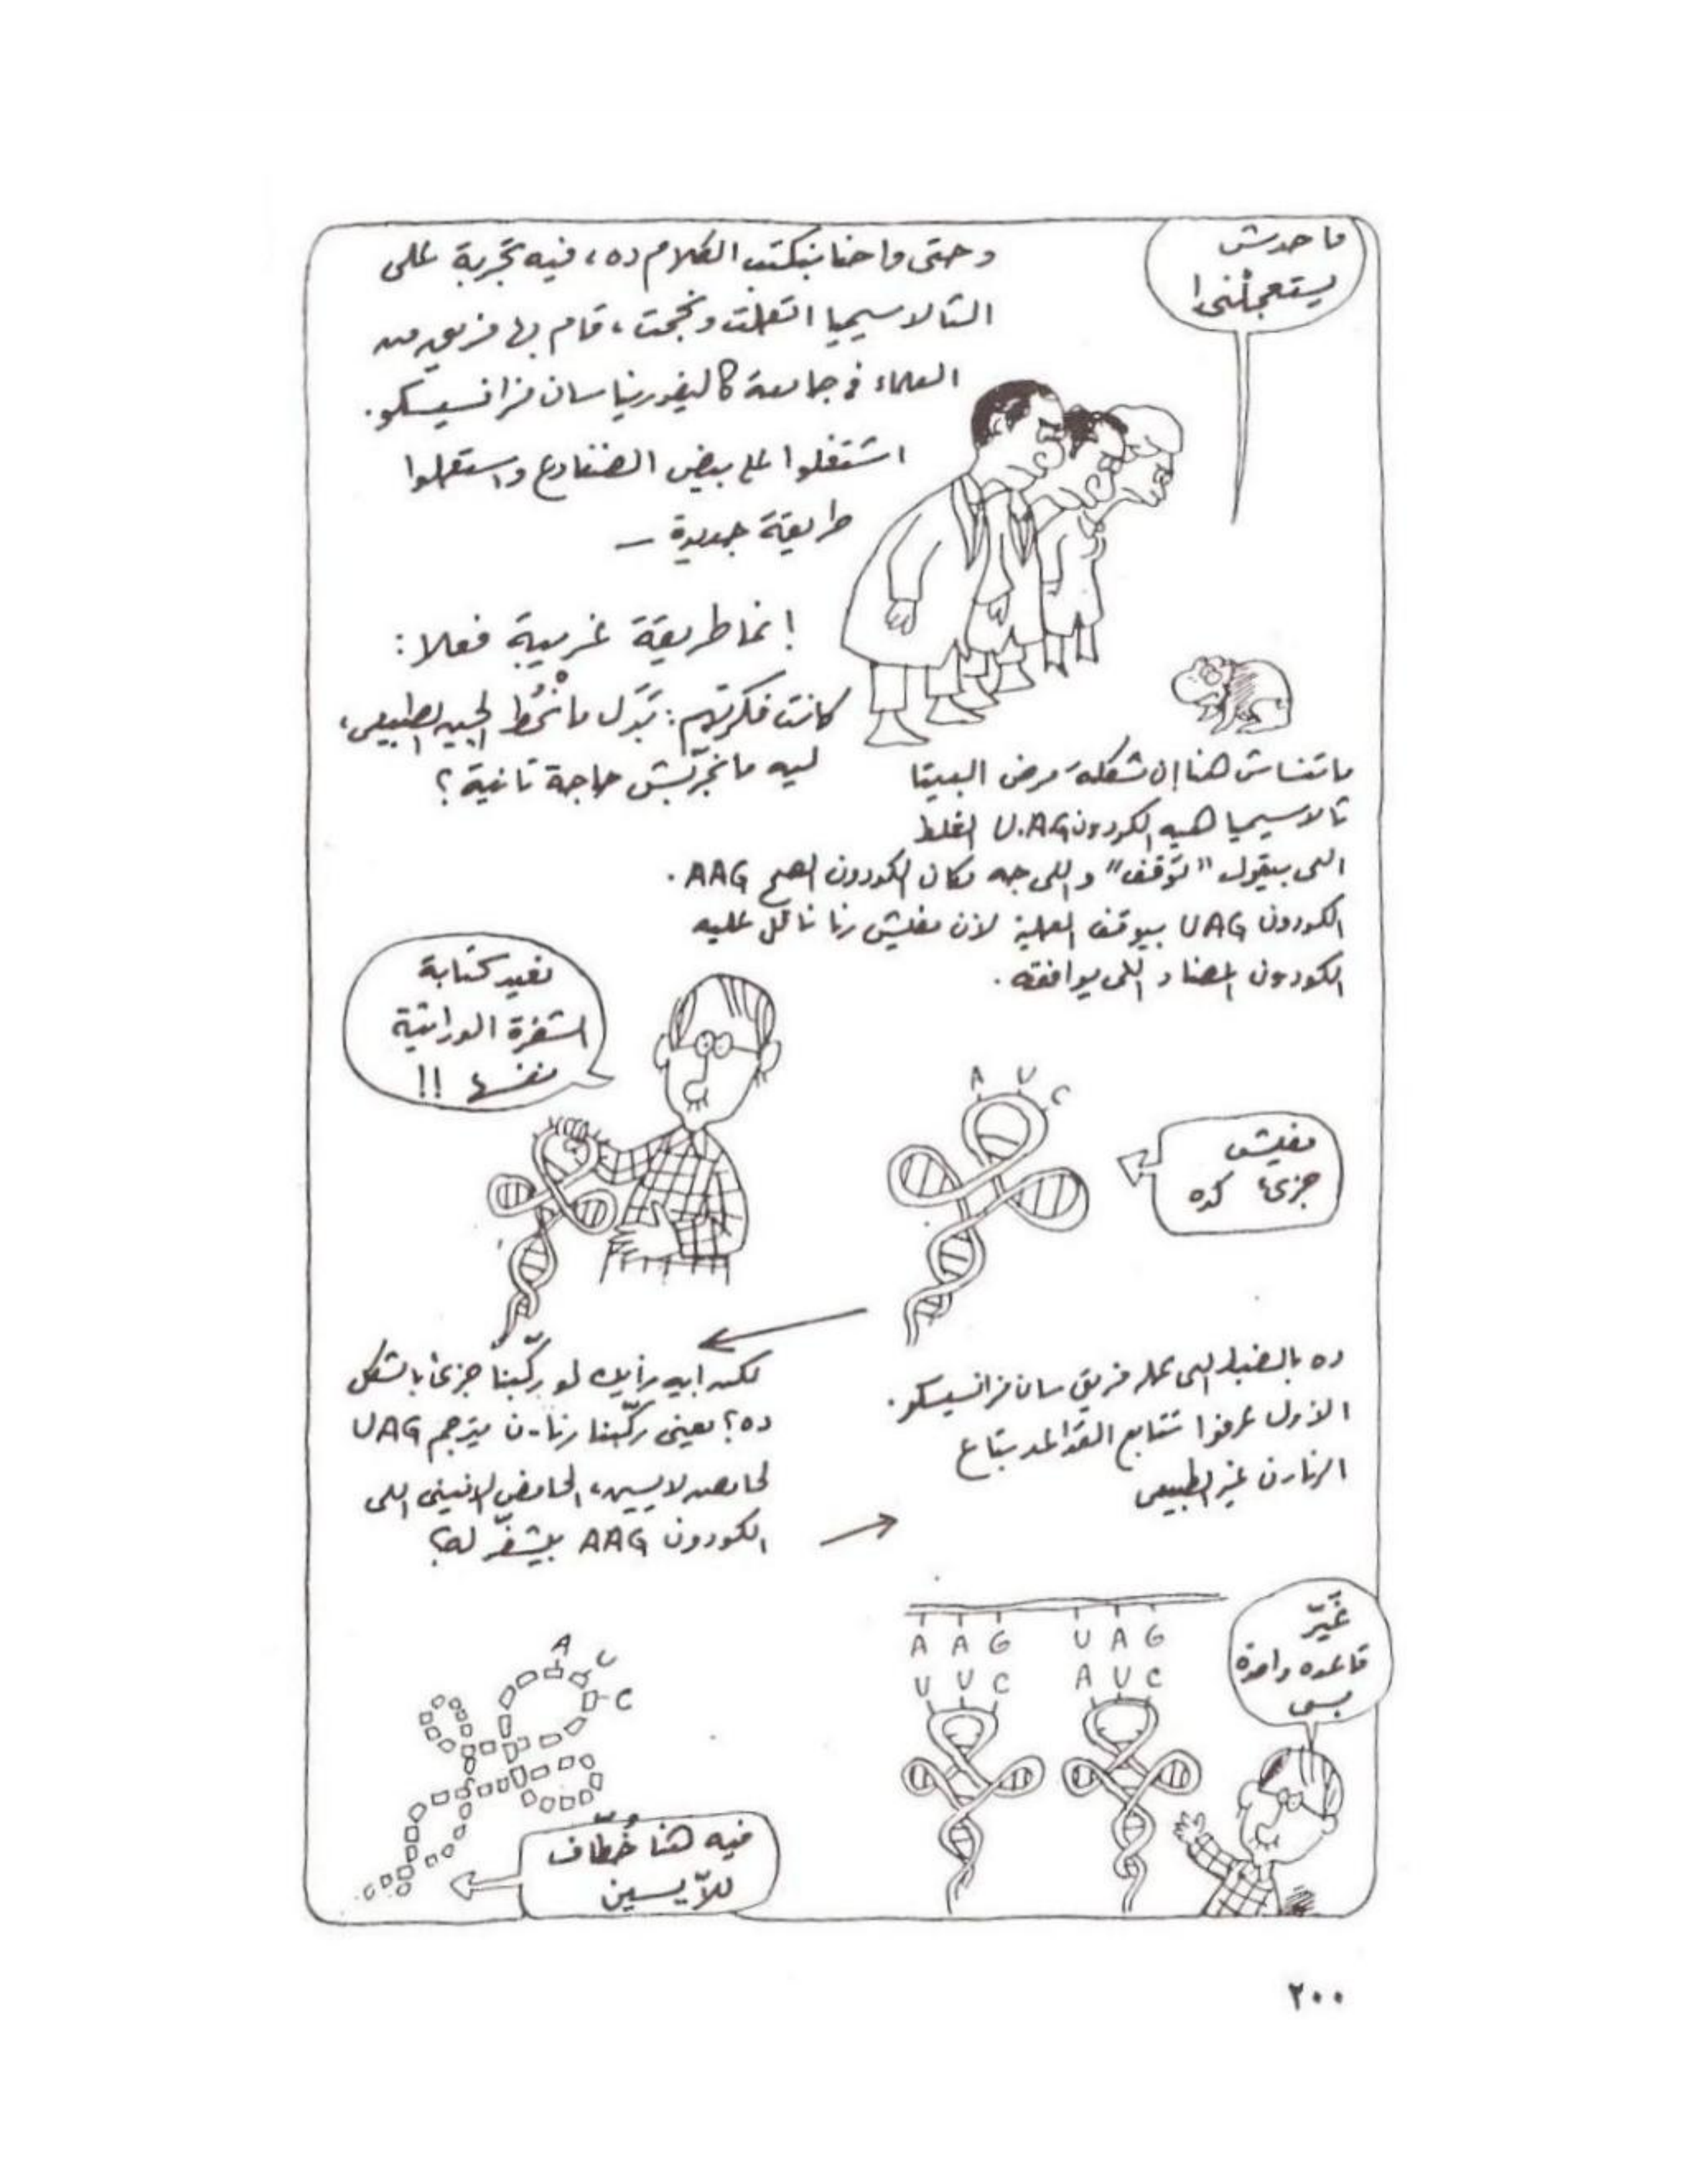 ما حدش
يستعجلْنى!
وحتى واحنا بنكتب الكلام ده، فيه تجربة على
التالاسيميا اتعملت ونجحت، قام بها فريق من
العلماء فى جامعة كاليفورنيا سان فرانسيسكو.
اشتغلوا على بيض الضفادع واستعملوا
طريقة جديدة –
إنما طريقة غريبة فعلا:
كانت فكرتهم: بَدَل ما نْحُط الجين الطبيعى،
ليه ما نجرّبش حاجة تانية؟
ماتنساش هنا إن مشكلة مرض البيتا
تالاسيميا هيه الكودون U.AG الغلط
اللى بيقول "توقف" واللى جه مكان الكودون الصح AAG.
الكودون UAG بيوقف العملية لأن مفيش رنا ناقل عليه
الكودون المضاد اللى يوافقه.
نعيد كتابة
الشفرة الوراثية
نفسها !!
A U C
مفيش
جزىء كده
لكن ايه رأيك لو ركّبنا جزىء بالشكل
ده؟ يعنى ركّبنا رنا-ن يترجم UAG
لحامض لايسين، الحامض الامينى اللى
الكودون AAG بيشفّر له؟
ده بالضبط اللى عمله فريق سان فرانسيسكو.
الأول عرفوا تتابع القواعد بتاع
الرنا-ن غير الطبيعى
A U C
فيه هنا خُطّاف
للّايسين
A A G U A G
U U C A U C
غيّر
قاعده واحدة
بس
٢٠٠